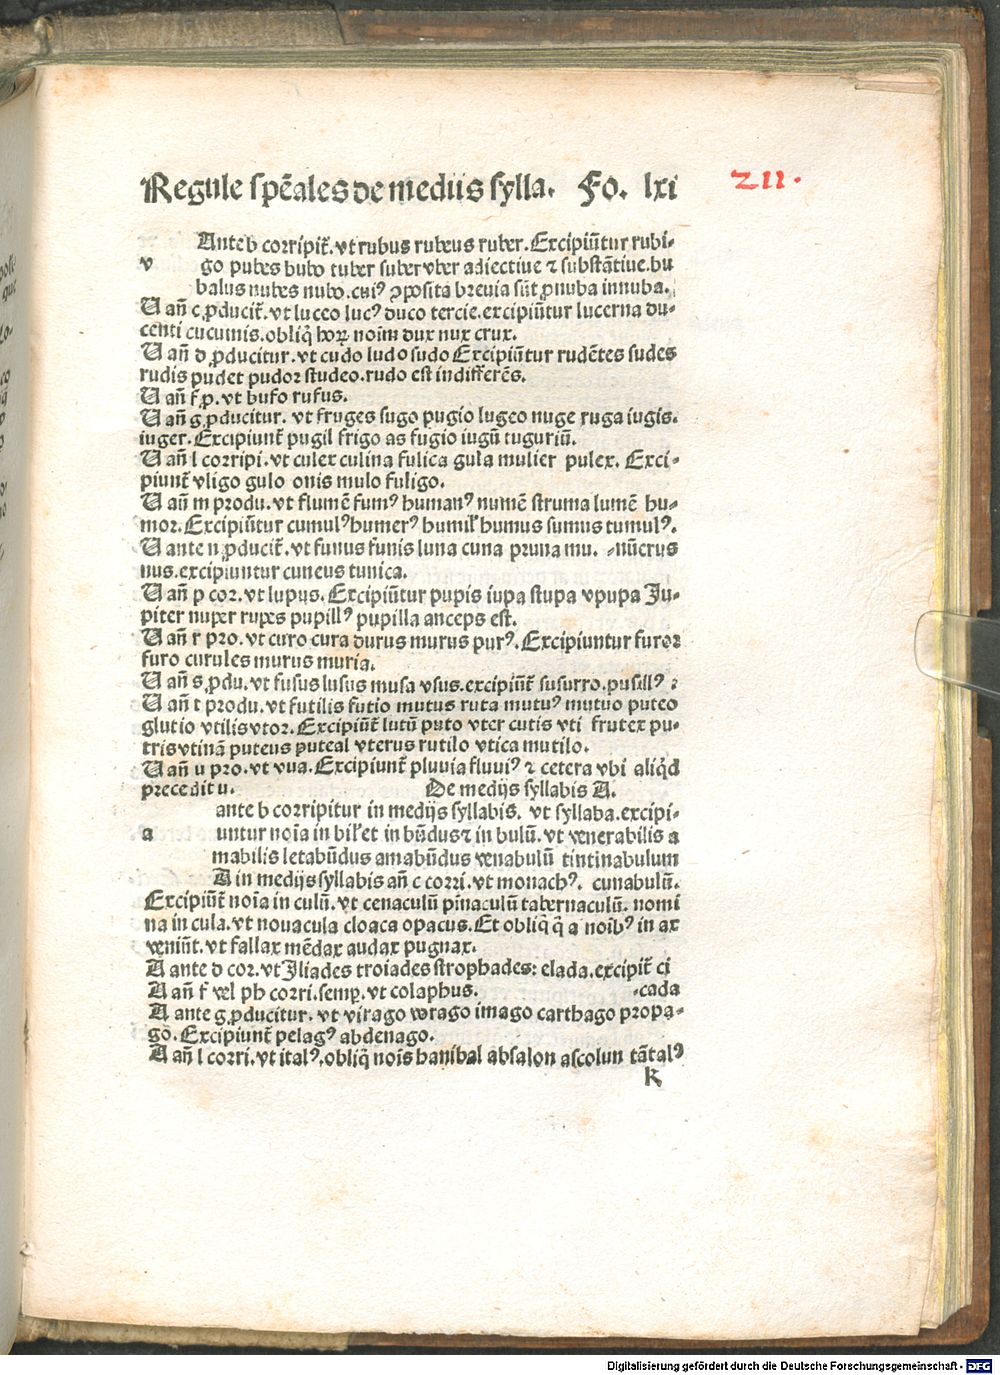 Regule speͨales de mediis sylla. Fo. lxi
211.
Ante b corripit̄. vt rubus rubeus ruber. Excipiūtur rubi-
v go pubes bubo tuber suber vber adiectiue ⁊ substātiue. bu
balus nubes nubo. cuiꝰ ꝯposita breuia sūt ꝓnuba innuba.
U añ c ꝓducit̄. vt luceo lucꝰ duco tercie. excipiūtur lucerna du-
centi cucumis. obliq̄ hoꝝ noīm dux nux crux.
U añ d ꝓducitur. vt cudo ludo sudo Excipiūtur rudētes sudes
rudis pudet pudor studeo. rudo est indifferēs.
U añ f ꝓ. vt bufo rufus.
U añ g ꝓducitur. vt fruges sugo pugio lugeo nuge ruga iugis.
iuger. Excipiunt̄ pugil frigo as fugio iugū tuguriū.
U añ l corripi. vt culex culina fulica gula mulier pulex. Exci-
piunt̄ vligo gulo onis mulo fuligo.
U añ m produ. vt flumē fumꝰ humanꝰ numē struma lumē hu-
mor. Excipiūtur cumulꝰ humerꝰ humil̓ humus sumus tumulꝰ.
U ante n ꝓducit̄. vt funus funis luna cuna pruna mu. -nū crus
nus. excipiuntur cuneus tunica.
U añ p cor. vt lupus. Excipiūtur pupis iupa stupa vpupa Ju-
piter nuper rupes pupillꝰ pupilla anceps est.
U añ r pro. vt curo cura durus murus purꝰ. Excipiuntur furor
furo curules murus muria.
U añ s ꝓdu. vt fusus lusus musa vsus. excipiūt̄ susurro. pusillꝰ :
U añ t produ. vt futilis futio mutus ruta mutuꝰ mutuo puteo
glutio vtilis vtor. Excipiūt̄ lutū puto vter cutis vti frutex pu-
tris vtinā puteus puteal vterus rutilo vtica mutilo.
U añ u pro. vt vua. Excipiunt̄ pluuia fluuiꝰ ⁊ cetera vbi aliq̇d
precedit u. De medijs syllabis A.
ante b corripitur in medijs syllabis. vt syllaba. excipi-
a untur noīa in bil̓ et in būdus ⁊ in bulū. vt venerabilis a
mabilis letabūdus amabūdus venabulū tintinabulum
A in medijs syllabis añ c corri. vt monachꝰ. cunabulū.
Excipiūt̄ noīa in culū. vt cenaculū pinaculū tabernaculū. nomi
na in cula. vt nouacula cloaca opacus. Et obliq̄ q̄ a noībꝰ in ax
veniūt. vt fallax mēdax audax pugnax.
A ante d cor. vt Iliades troiades strophades: elada. excipit̄ ci
A añ f vel ph corri. semꝑ. vt colaphus. -cada
A ante g ꝓducitur. vt virago vorago imago carthago propa-
go. Excipiunt̄ pelagꝰ abdenago.
A añ l corri. vt italꝰ. obliq̄ noīs hanibal absalon ascolun tātalꝰ
K
Digitalisierung gefördert durch die Deutsche Forschungsgemeinschaft - DFG